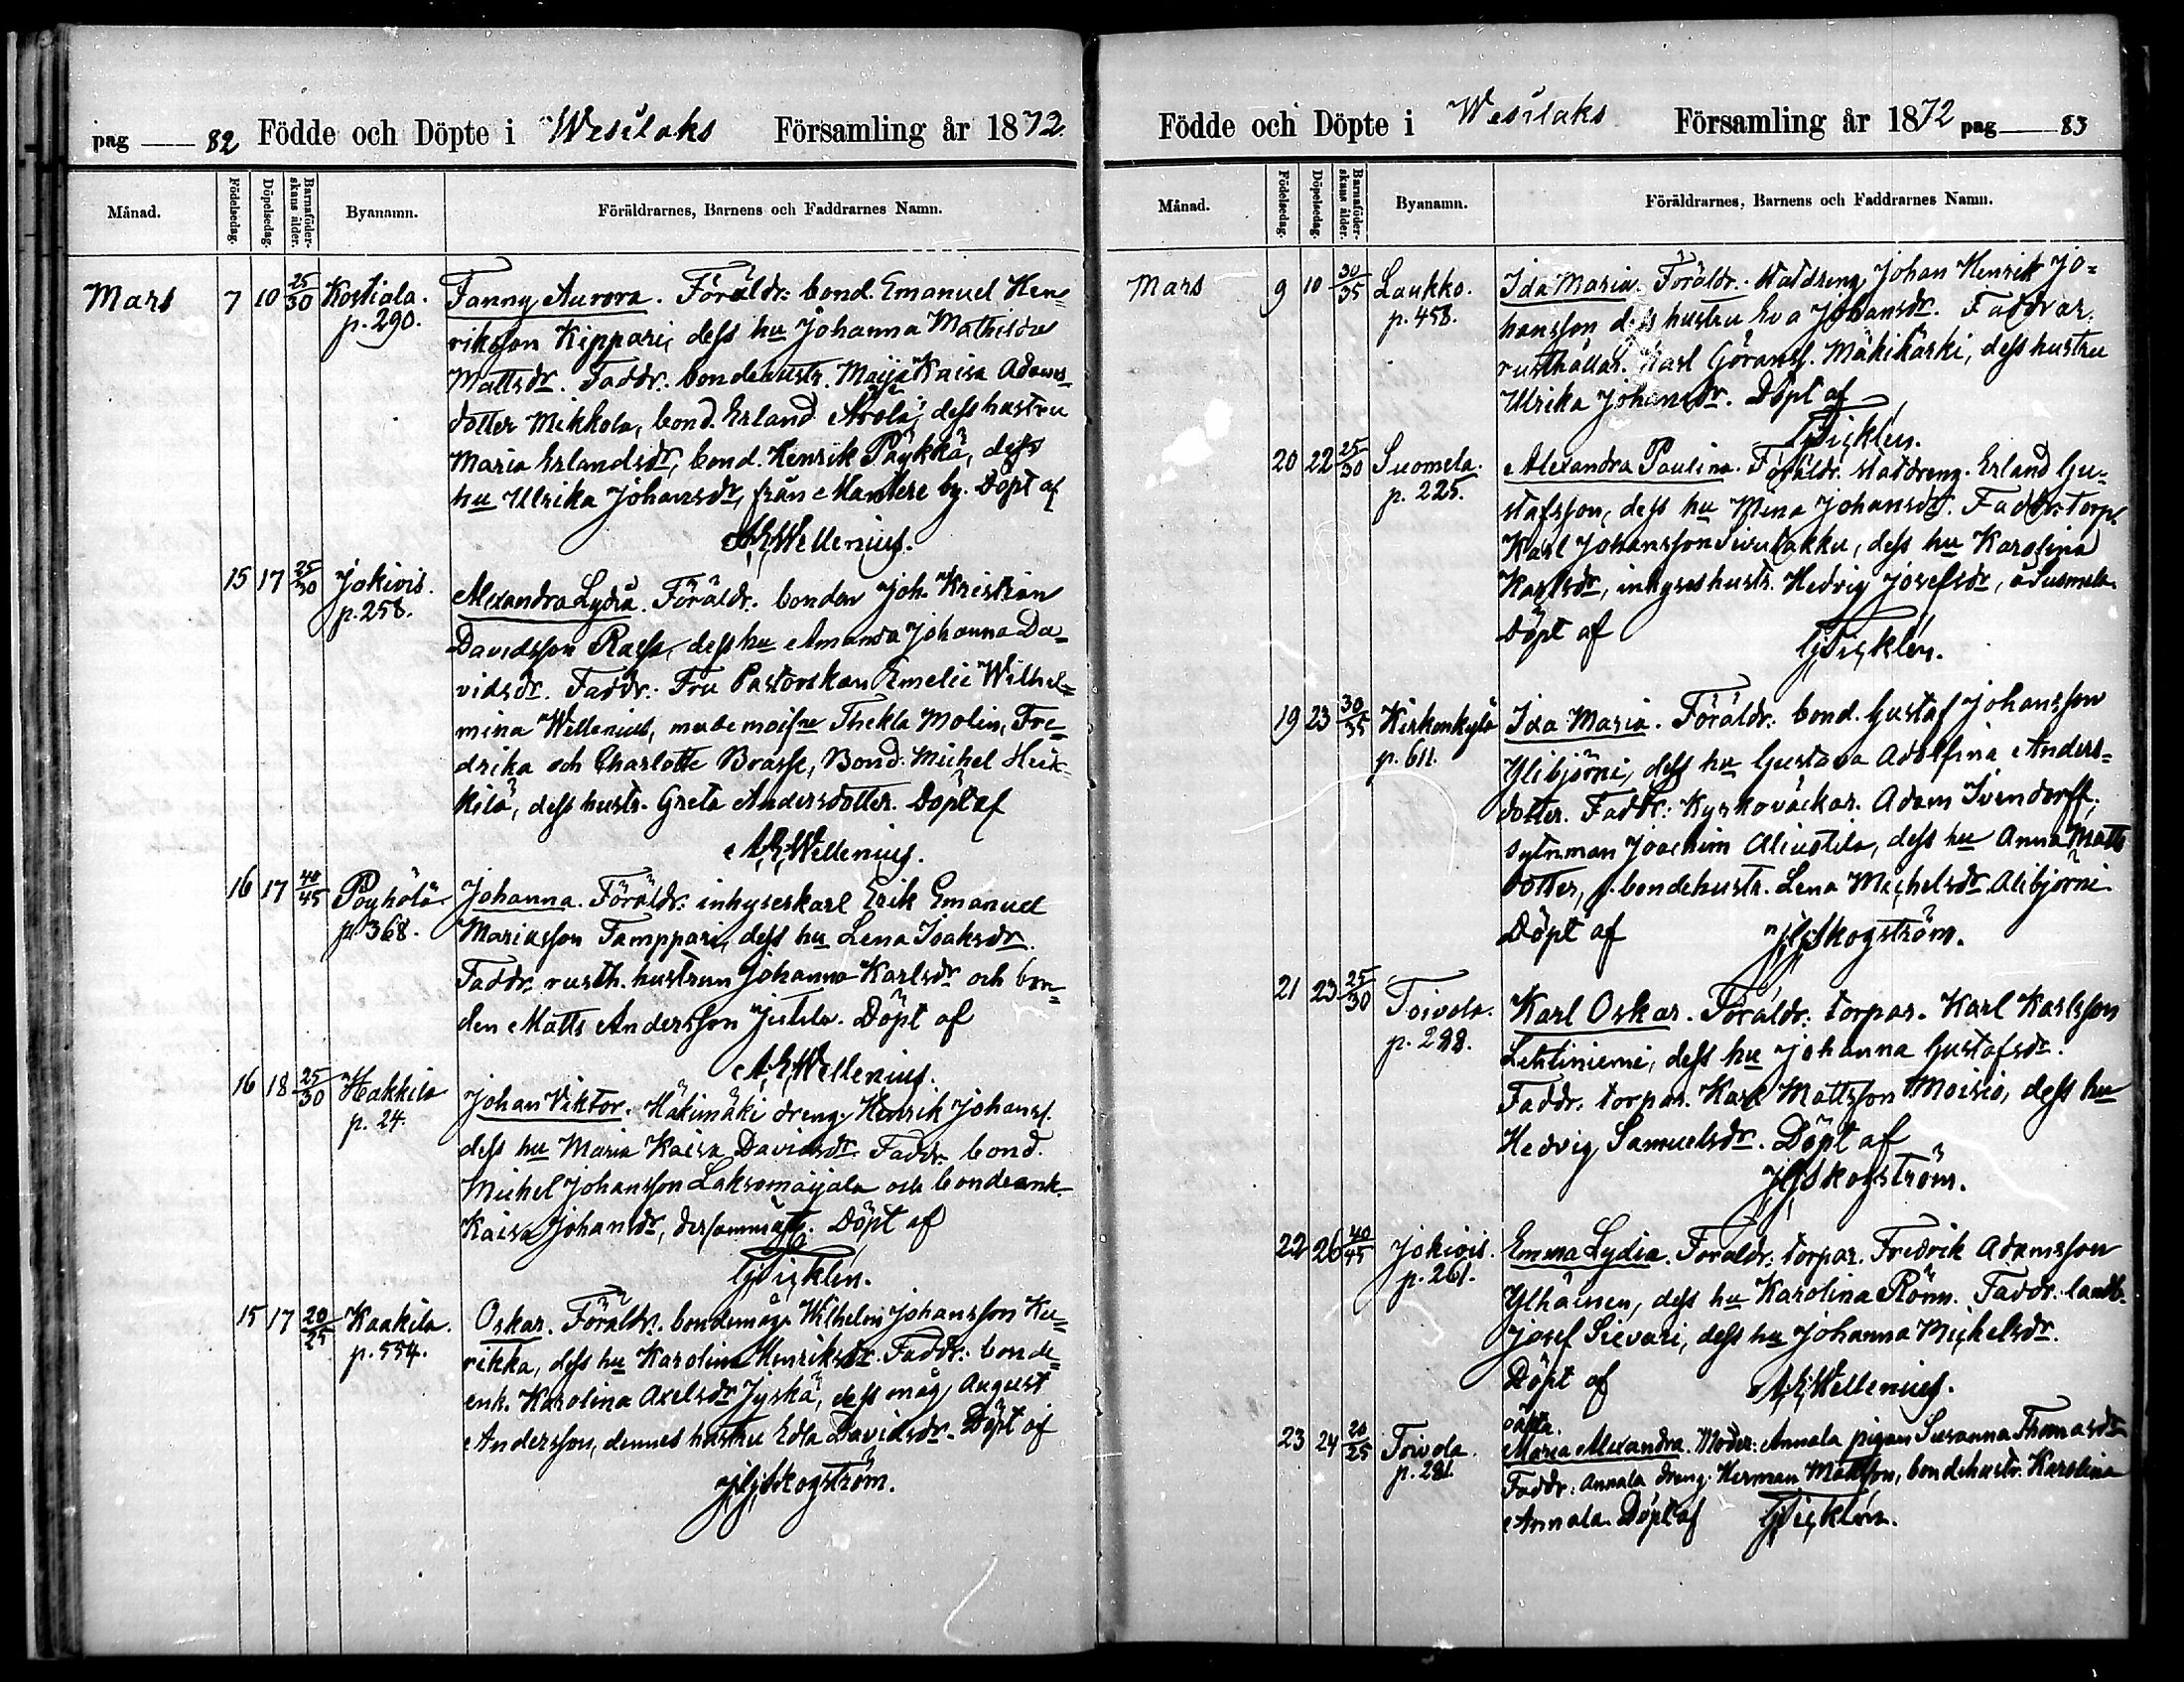 pag 82 Födde och Döpte i Wesilaks Församling år 1872.
Månad. Födelsedag. Döpelsedag. Barnaföderskans ålder. Byanamn. Föräldrarnes, Barnens och Faddrarnes Namn.
Mars 7 10 25/30 Kostiala. p. 290.
Fanny Aurora. Föräldr: bond. Emanuel Hen=
riksson Kippari, dess hu Johanna Mathilda
Mattsdr. Faddr. bondehustr. Maija Kaisa Adams-
dotter Mikkola, bond. Erland Arola, dess hustru
Maria Erlandsdr, bond. Henrik Päykkä, dess
hu Ulrika Johansdr, från Mantere by. Döpt af
A E Wellenius.
15 17 25/30 Jokiois. p. 258.
Alexandra Lydia. Föräldr. bonden Joh. Kristian
Davidsson Rassa, dess hu Amanda Johanna Da=
vidsdr. Faddr. Fru Pastorskan Emelie Wilhel=
mina Wellenius, mademoislle Thekla Molin, Fre=
drika och Charlotte Brasse, Bond. Michel Heik-
kilä, dess hustr. Greta Andersdotter. Döpt af
A E Wellenius.
16 17 40/45 Pöyhölä. p. 368.
Johanna. Föräldr. inhyseskarl Erik Emanuel
Mariasson Tamppari, dess hu Lena Isaksdr.
Faddr. rusth. hustrun Johanna Karlsdr och bon=
den Matts Andersson Jutila. Döpt af
A E Wellenius.
16 18 25/30 Hakkila p. 24.
Johan Viktor. Häkimäki dreng Henrik Johanss.
dess hu Maria Kaisa Davidsdr. Faddr. bond.
Michel Johansson Laksomaijala och bondeenk.
Kaisa Johansdr, dersammast. Döpt af
G Ticklén.
15 17 20/25 Kaakila. p. 554.
Oskar. Föräldr. bondemåg Wilhelm Johansson Ku=
rikka, dess hu Karolina Henriksdr. Faddr: bonde=
enk. Karolina Axelsdr Jyskä, dess måg August
Andersson, dennes hustru Edla Davidsdr. Döpt af
J H Skogström.
Födde och Döpte i Wesilaks Församling år 1872 pag 83
Månad. Födelsedag. Döpelsedag. Barnaföderskans ålder. Byanamn. Föräldrarnes, Barnens och Faddrarnes Namn.
Mars 9 10 30/35 Laukko. p. 458.
Ida Maria. Föräldr. Statdreng Johan Henrik Jo=
hansson dess hustru Eva Johansdr. Faddrar.
rusthållar. Karl Göranss. Mäkikäski, dess hustru
Ulrika Johansdr. Döpt af
G Ticklén.
20 22 25/30 Suomela. p. 225.
Alexandra Paulina. Föräldr. statdreng. Erland Gu=
stafsson, dess hu Mina Johansdr. Faddr. torp.
Karl Johansson, dess hu Karolina
Karlsdr, inhyseshustr. Hedvig Josefsdr, å Suomela.
Döpt af G Ticklén.
19 23 30/35 Kirkonkylä p. 611.
Ida Maria. Föräldr: bond. Gustaf Johansson
Ylibjörni, dess hu Gustava Adolfina Anders=
dotter. Faddr: Kyrkoväckar. Adam Ivendorff,
sytn.man Joachim Aliuotila, dess hu Anna Matts
dotter, f. bondehustr. Lena Michelsdr Alibjörni
Döpt af J H Skogström.
21 23 25/30 Toivola. p. 288.
Karl Oskar. Föräldr: torpar. Karl Karlsson
Lehtiniemi, dess hu Johanna Gustafsdr.
Faddr. torpar. Karl Mattsson Moisio, dess hu
Hedvig Samuelsdr. Döpt af
J H Skogström.
22 26 40/45 Jokiois. p. 261.
Emma Lydia. Föräldr: torpar. Fredrik Adamsson
Ylhäinen, dess hu Karolina Rönn. Faddr. landb.
Josef Sievari, dess hu Johanna Michelsdr.
Döpt af A E Wellenius.
23 24 20/25 Toivola p. 281.
oäkta.
Maria Alexandra. Moder: Annala pigan Susanna Thomasdr
Faddr: Annala dreng. Herman Mattsson, bondehustr. Karolina
Annala. Döpt af G Ticklén.